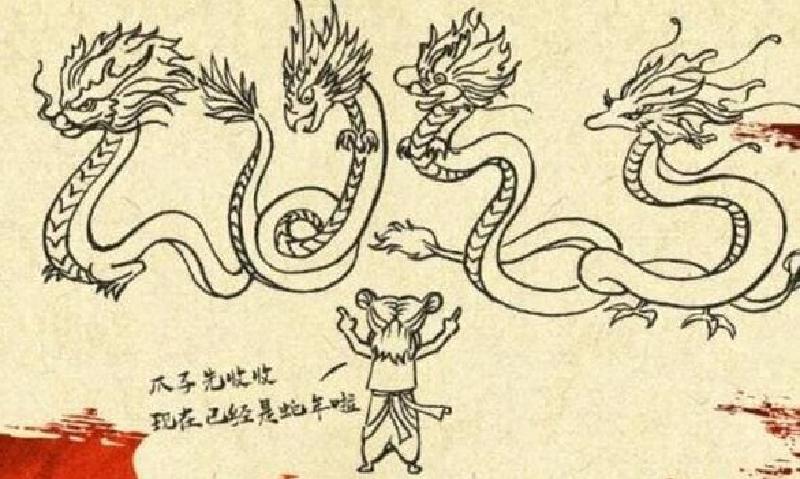 爪子先收收
现在已经是蛇年啦